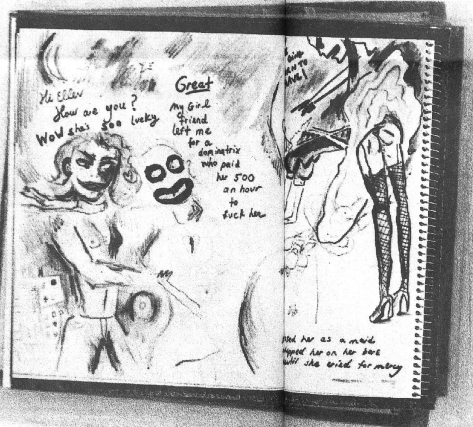 Hi Ellen
How are you?
Wow she's soo lucky
Great
My Girl
friend
left me
for a
dominatrix
who paid
her 500
an hour
to
fuck her
her as a maid
her on her back
until she cried for mercy